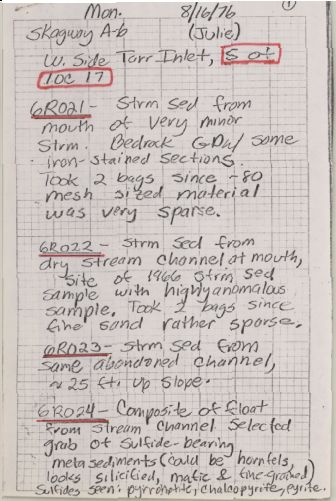 ①
Mon. 8/16/76
Skagway A-6 (Julie)
W. Side Tarr Inlet, S of
loc 17
6R021- Strm sed from
mouth of very minor
strm. Bedrock GDw/ some
iron-stained sections.
Took 2 bags since -80
mesh sized material
was very sparse.
6R022 - strm sed from
dry stream channel at mouth,
site of 1966 strm sed
sample with highly anomalous
sample. Took 2 bags since
fine sand rather sparse.
6R023 - strm sed from
same abandoned channel,
~ 25 ft. up slope.
6R024 - Composite of float
from stream channel selected
grab of sulfide-bearing
metasediments (could be hornfels,
looks silicified, mafic & fine-grained)
Sulfides seen: pyrrhotite, chalcopyrite, pyrite.